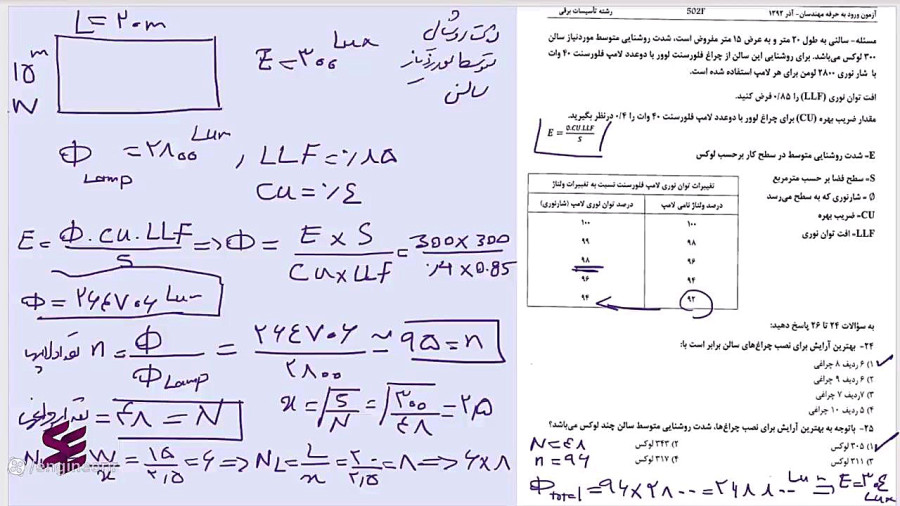 آزمون ورود به حرفه مهندسان- آذر ۱۳۹۲
502F
رشته تأسیسات برقی
مسئله- سالنی به طول ۲۰ متر و به عرض ۱۵ متر مفروض است، شدت روشنایی متوسط موردنیاز سالن
۳۰۰ لوکس می‌باشد. برای روشنایی این سالن از چراغ فلورسنت لوور با دوعدد لامپ فلورسنت ۴۰ وات
با شار نوری ۲۸۰۰ لومن برای هر لامپ استفاده شده است.
افت توان نوری (LLF) را ۰/۸۵ فرض کنید.
مقدار ضریب بهره (CU) برای چراغ لوور با دوعدد لامپ فلورسنت ۴۰ وات را ۰/۴ درنظر بگیرید.
E = Ø.CU.LLF / S
E= شدت روشنایی متوسط در سطح کار برحسب لوکس
S= سطح فضا بر حسب مترمربع
Ø= شارنوری که به سطح می‌رسد
CU= ضریب بهره
LLF= افت توان نوری
تغییرات توان نوری لامپ فلورسنت نسبت به تغییرات ولتاژ
درصد ولتاژ نامی لامپ درصد توان نوری لامپ (شارنوری)
۱۰۰ ۱۰۰
۹۸ ۹۹
۹۶ ۹۸
۹۴ ۹۶
۹۲ ۹۴
به سؤالات ۲۴ تا ۲۶ پاسخ دهید:
۲۴- بهترین آرایش برای نصب چراغ‌های سالن برابر است با:
۱) ۶ ردیف ۸ چراغی
۲) ۶ ردیف ۹ چراغی
۳) ۷ردیف ۷ چراغی
۴) ۵ ردیف ۱۰ چراغی
۲۵- باتوجه به بهترین آرایش برای نصب چراغ‌ها، شدت روشنایی متوسط سالن چند لوکس می‌باشد؟
۱) ۳۰۵ لوکس ۲) ۳۴۳ لوکس
۳) ۳۱۱ لوکس ۴) ۳۱۷ لوکس
N=۴۸
n=۹۶
Φ total = ۹۶×۲۸۰۰ = ۲۶۸۸۰۰ Lum ⇒ E=۳۰۴ Lux
L=۲۰m
۱۵m
W
E=۳۰۰ Lux
شدت روشنائی
متوسط مورد نیاز
سالن
Φ Lamp =۲۸۰۰ Lum , LLF=٪۸۵
CU=٪۴
E= Φ.CU.LLF / S ⇒ Φ= E×S / CU×LLF = 300×300 / ۰.۴×0.85
Φ=۲۶۴۷۰۶ Lum
تعداد لامپها n= Φ / Φ Lamp = ۲۶۴۷۰۶ / ۲۸۰۰ ≃ ۹۵=n
=۴۸=N
x=√S/N=√۳۰۰/۴۸=۲,۵
W/x = ۱۵/۲,۵=۶ ⇒ NL= L/x = ۲۰/۲,۵=۸ ⇒ ۶×۸